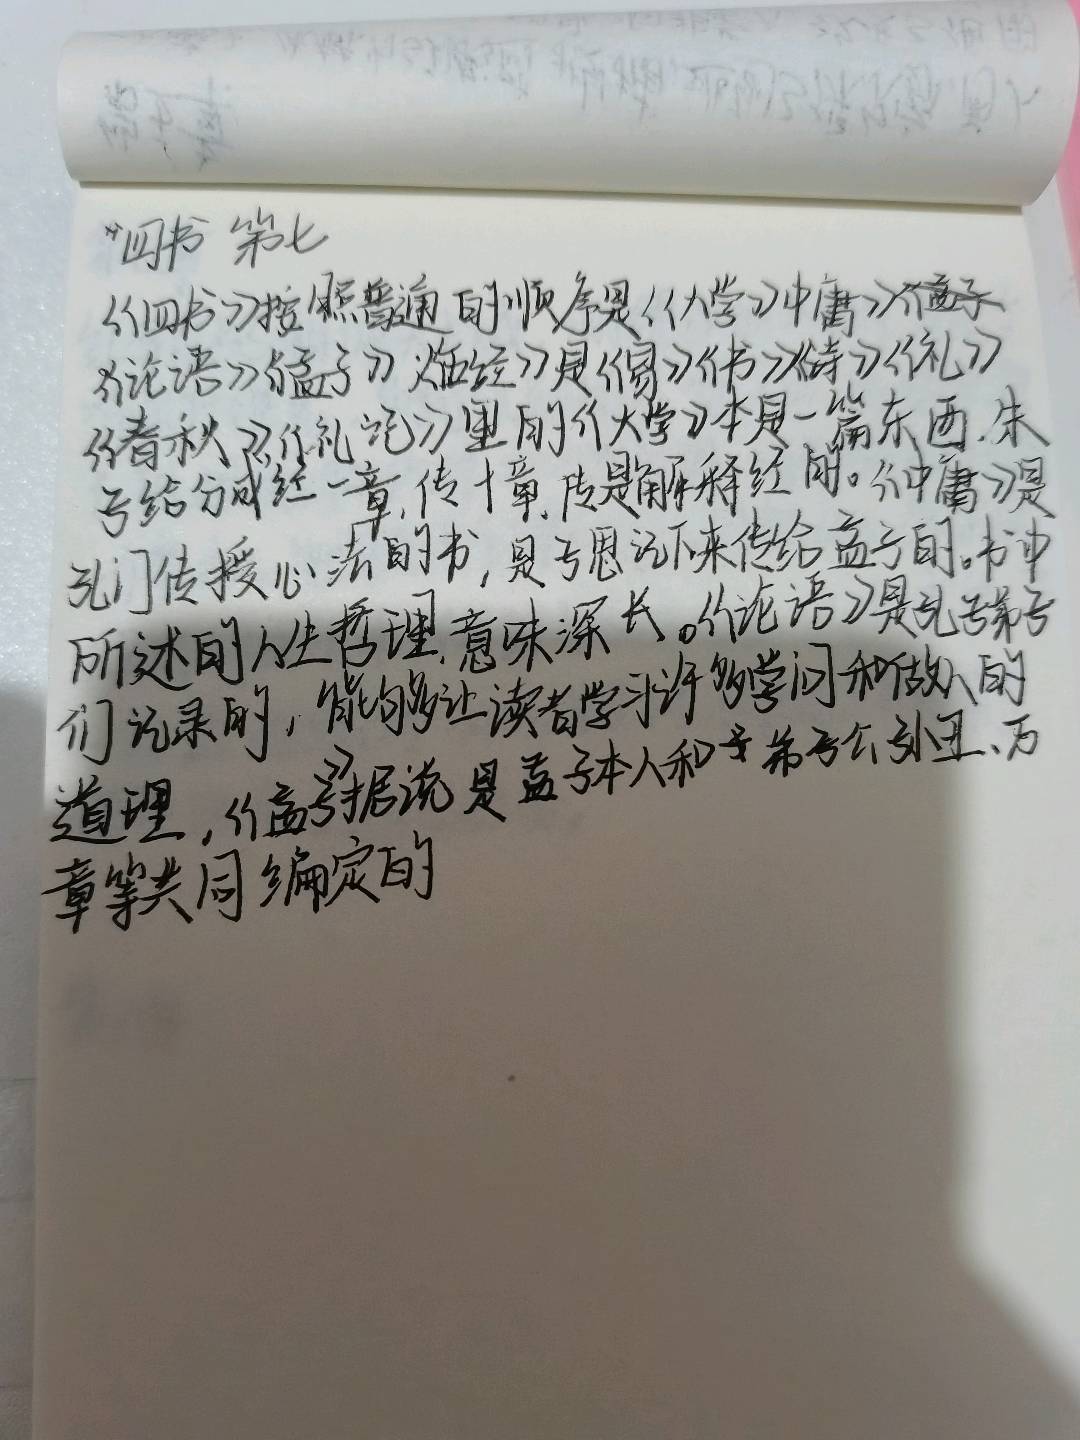 *四书 第七
《四书》按照普通的顺序是《大学》中庸》《孟子
《论语》《孟子》《五经》是《易》《书》《诗》《礼》
《春秋》《礼记》里的《大学》本是一篇东西、朱
子给分成经一章，传十章，传是解释经的。《中庸》是
孔门传授心法的书，是子思记下来传给孟子的。书中
所述的人生哲理，意味深长。《论语》是孔子弟子
们记录的，能够让读者学习许多学问和做人的
道理，《孟子》据说是孟子本人和子弟子公孙丑、万
章等共同编定的